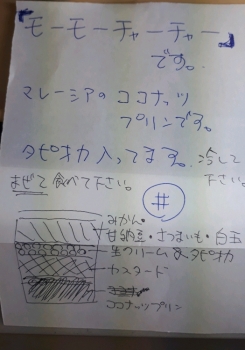 「モーモーチャーチャー」
です。
マレーシアのココナッツ
プリンです。
タピオカ入ってます。冷して
下さい。
まぜて食べて下さい。
#
みかん。
甘納豆・さつまいも・白玉
生クリーム&タピオカ
カスタード
ココナッツプリン